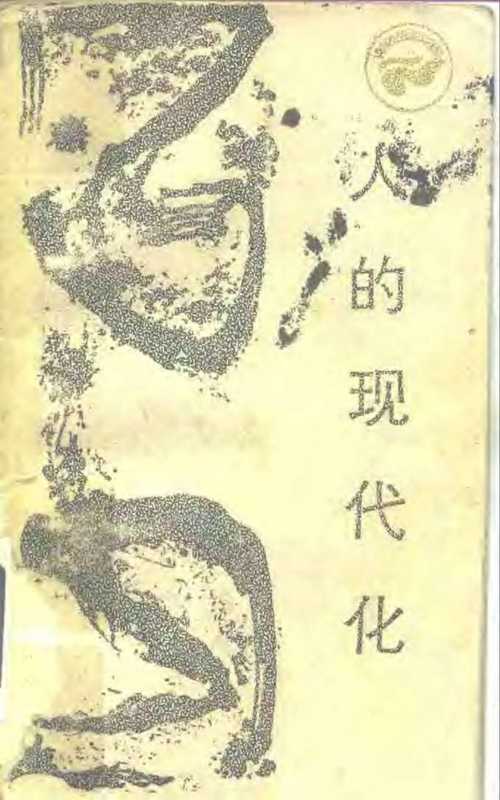 人的现代化